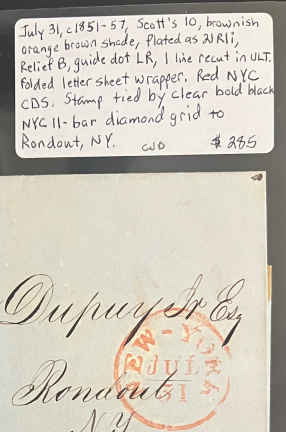 July 31, c1851-57, Scott's 10, brownish
orange brown shade, Plated as 21R1i,
Relief B, guide dot LR, 1 line recut in ULT.
Folded letter sheet wrapper. Red NYC
CDS. Stamp tied by clear bold black
NYC 11-bar diamond grid to
Rondout, NY. CWD $285
Dupuy Jr Esq
NEW-YORK
JUL
31
Rondout
N Y